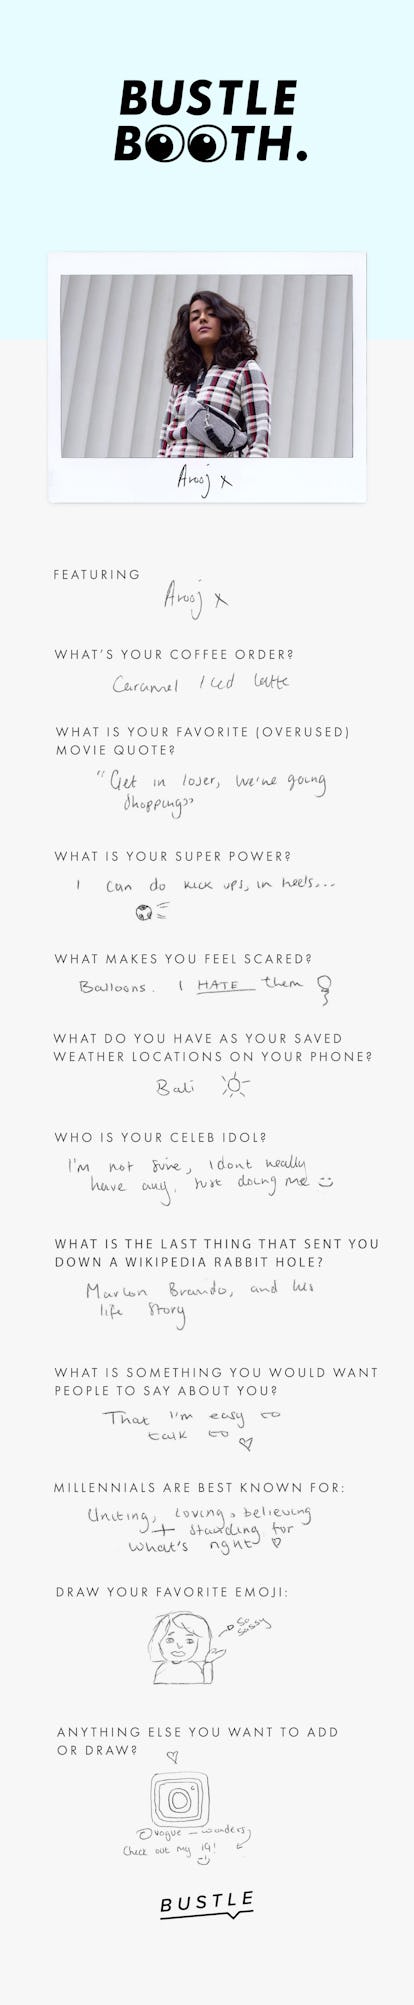 BUSTLE
BOOTH.
Arooj x
FEATURING
Arooj x
WHAT'S YOUR COFFEE ORDER?
Caramel Iced latte
WHAT IS YOUR FAVORITE (OVERUSED)
MOVIE QUOTE?
"Get in loser, we're going
shopping"
WHAT IS YOUR SUPER POWER?
I can do kick ups, in heels...
WHAT MAKES YOU FEEL SCARED?
Balloons. I HATE them
WHAT DO YOU HAVE AS YOUR SAVED
WEATHER LOCATIONS ON YOUR PHONE?
Bali
WHO IS YOUR CELEB IDOL?
I'm not sure, I dont really
have any, Just doing me
WHAT IS THE LAST THING THAT SENT YOU
DOWN A WIKIPEDIA RABBIT HOLE?
Marlon Brando, and his
life story
WHAT IS SOMETHING YOU WOULD WANT
PEOPLE TO SAY ABOUT YOU?
That I'm easy to
talk to
MILLENNIALS ARE BEST KNOWN FOR:
Uniting, Loving, believing
+ standing for
what's right
DRAW YOUR FAVORITE EMOJI:
So
sassy
ANYTHING ELSE YOU WANT TO ADD
OR DRAW?
@vogue_wonders
Check out my IG!
BUSTLE